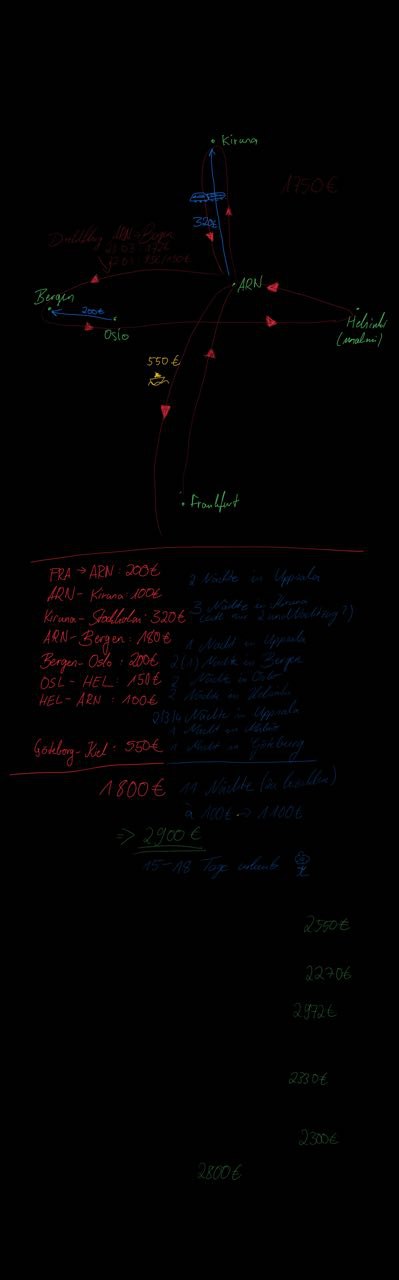 Kiruna
1750€
320€
ARN
Bergen
200€
Oslo
Helsinki
550€
Frankfurt
FRA → ARN : 200€
2 Nächte in Uppsala
ARN - Kiruna : 100€
3 Nächte in Kiruna
Kiruna - Stockholm : 320€
ARN - Bergen : 180€
1 Nacht in Uppsala
Bergen - Oslo : 200€
2(1) Nächte in Bergen
OSL - HEL : 150€
2 Nächte in Oslo
HEL - ARN : 100€
2 Nächte in Helsinki
2/3/4 Nächte in Uppsala
1 Nacht in
Göteborg - Kiel : 550€
1 Nacht in Göteborg
1800€
11 Nächte
à 100€ → 1100€
=> 2900€
15-18 Tage
2550€
2270€
2972€
2330€
2300€
2800€